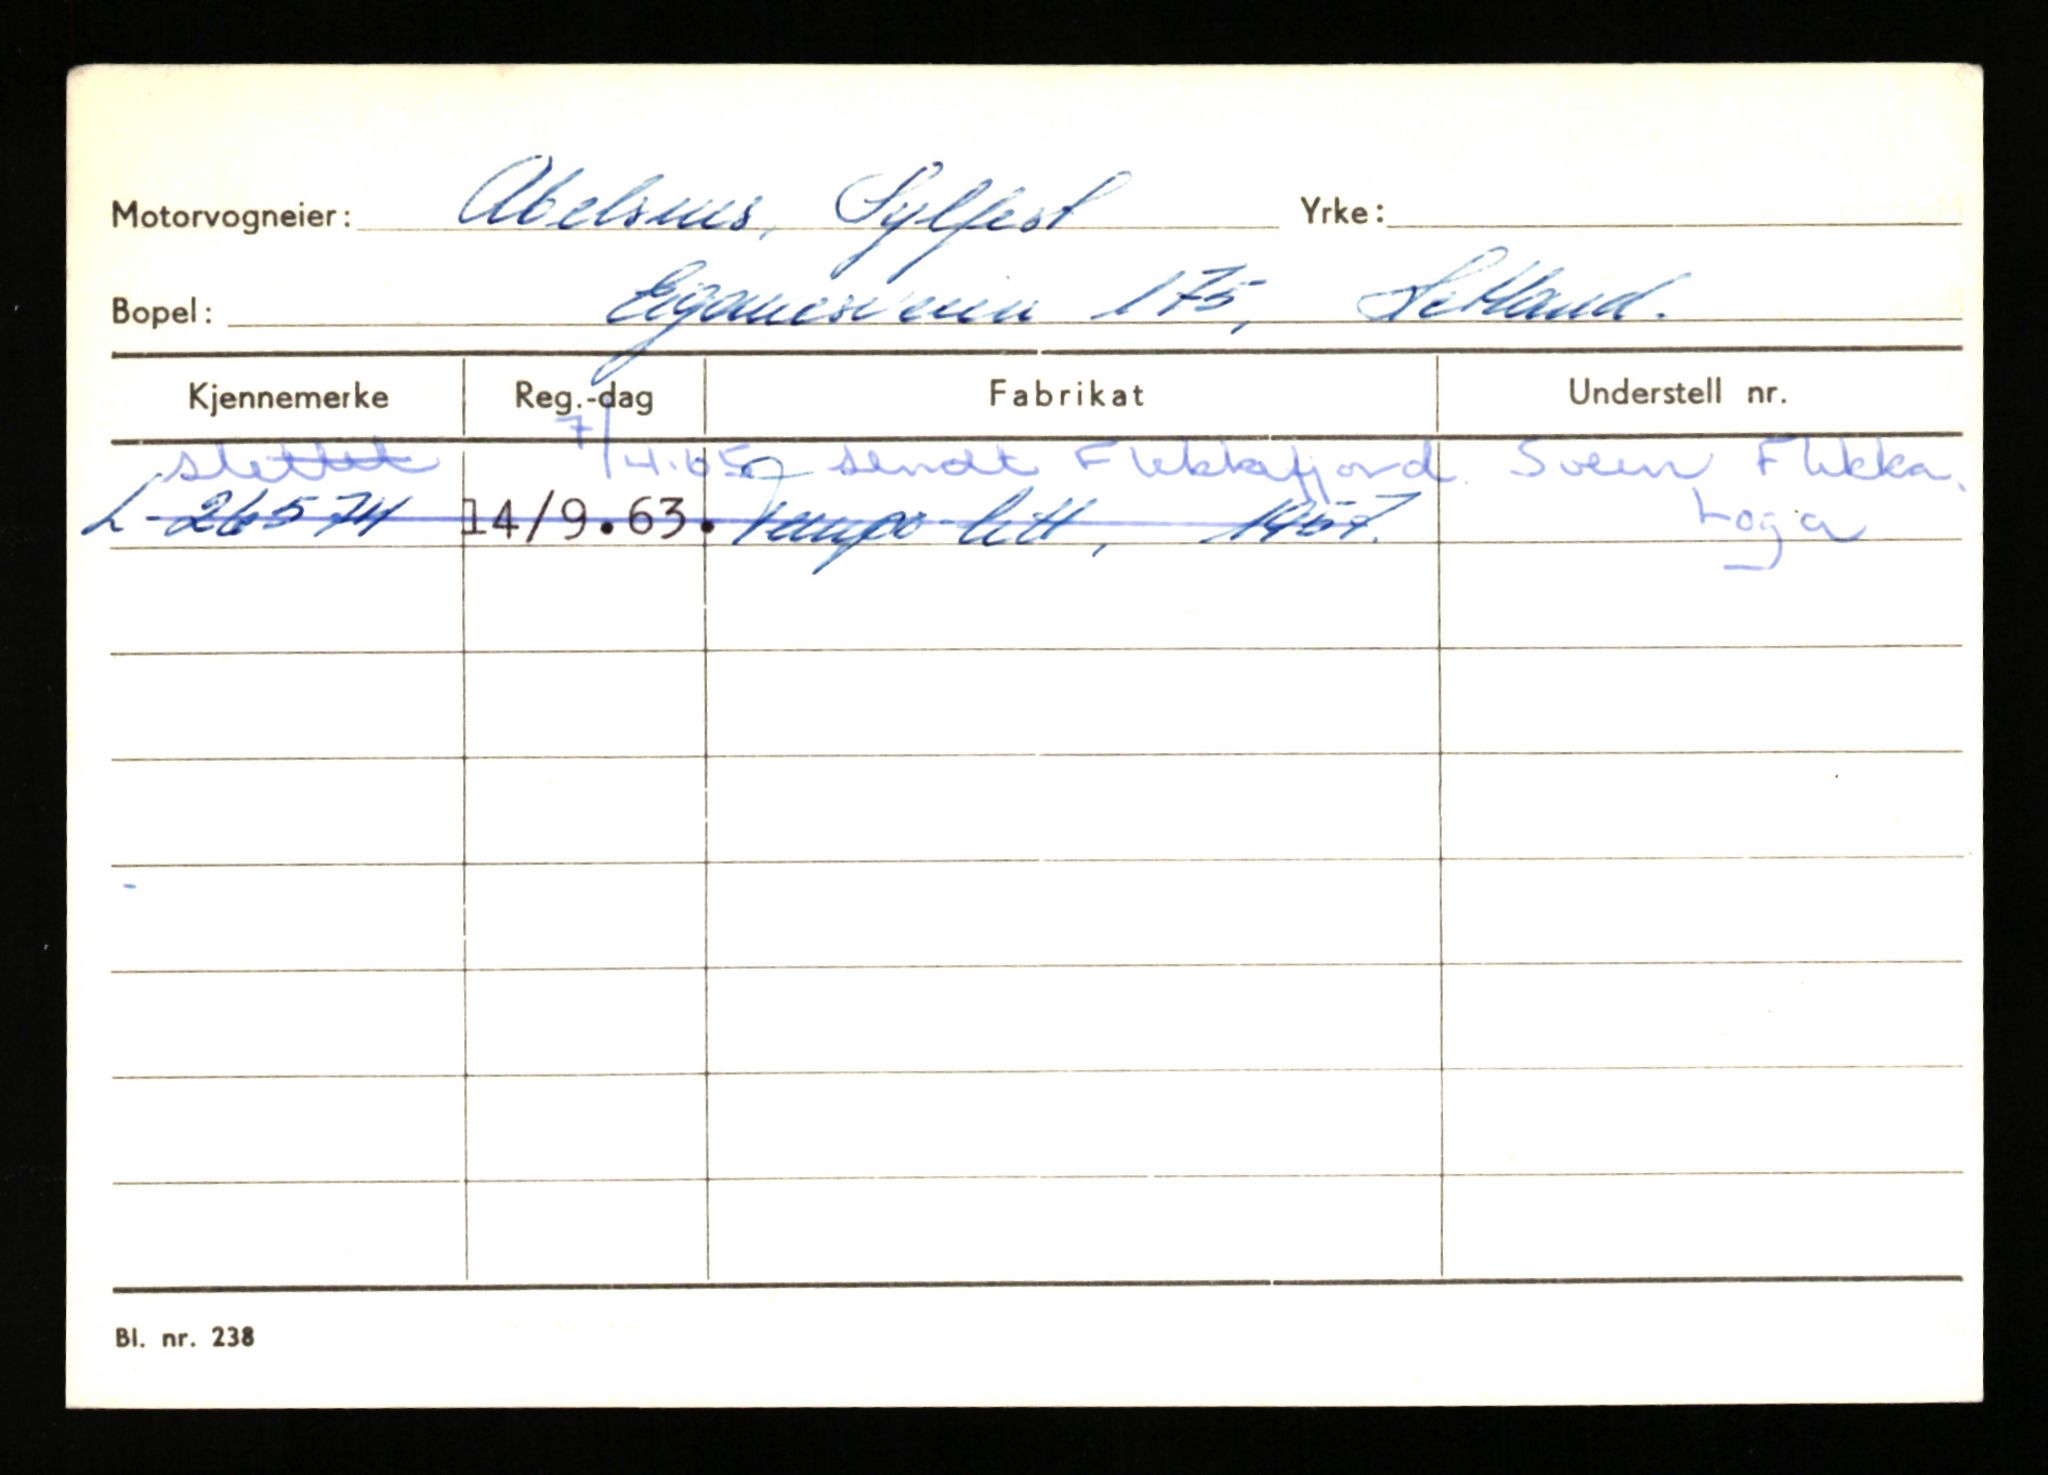 Motorvogneier: Abelsnes, Sylfest Yrke:
Bopel: Eiganesveien 175, Hetland.
Kjennemerke Reg.-dag Fabrikat Understell nr.
slettet 7/4.65 sendt Flekkefjord. Svein Flikka.
L-26574 14/9.63. Tempo-lett, 1957. Loga
Bl. nr. 238